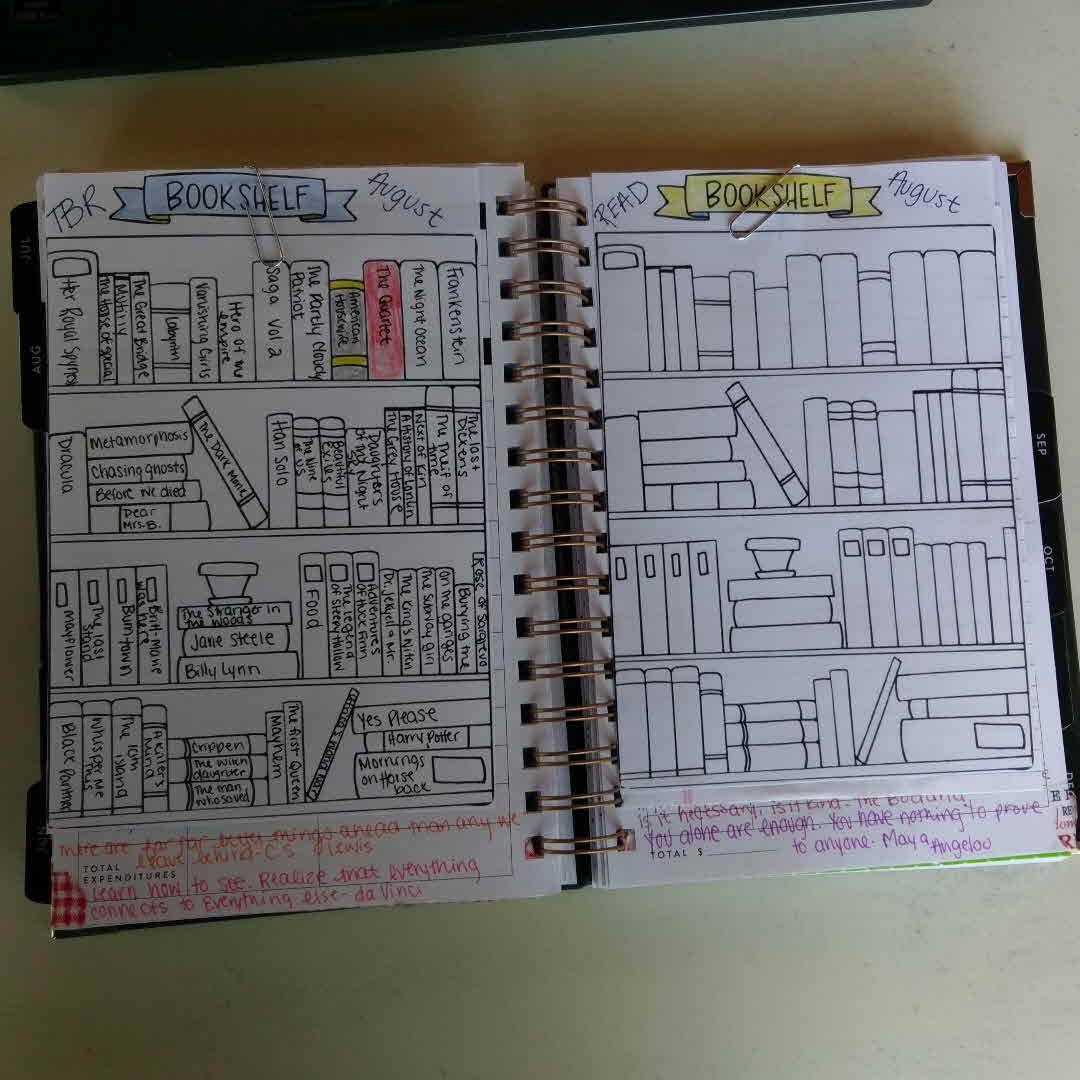 TBR
BOOKSHELF
August
Her Royal Spyness
The House of special
Mutiny
The Great Bridge
Labyrinth
Vanishing Girls
Hero of the empire
Saga Vol 2
The Partly Cloudy Patriot
American Housewife
The Quartet
The Night Ocean
Frankenstein
Dracula
Metamorphosis
Chasing ghosts
Before we died
Dear
Mrs. B.
The Dark Mane
Han Solo
The Nine of us
Beautiful Exiles
Daughters of the Night Sky
The Grey House
A History of
Next of Kin
The Theif of Time
The last Dickens
Mayflower
The last Stand
Burntown
Brit-Marie was here
The Stranger in
the woods
Jane Steele
Billy Lynn
Food
The legend of Sleepy Hollow
Adventures of Huck Finn
Dr. Jekyll & Mr.
The King's Witch
The Subway girl
on the ganges
Burning the
Rose of Sarajevo
Black Panther
Whisper me This
The 10th Island
A Killers mind
Crippen
The witch
daughter
The man
who saved
Mayhem
The first Queen
Yes Please
Harry Potter
Mornings
on Horse
back
there are far far better things ahead than any we
leave behind - C.S lewis
TOTAL
EXPENDITURES
Learn how to see. Realize that everything
connects to Everything else - da Vinci
JUL
AUG
READ
BOOKSHELF
August
is it necessary, is it kind - The Buddha
You alone are enough. You have nothing to prove
to anyone. Maya Angelou
TOTAL $
SEP
OCT